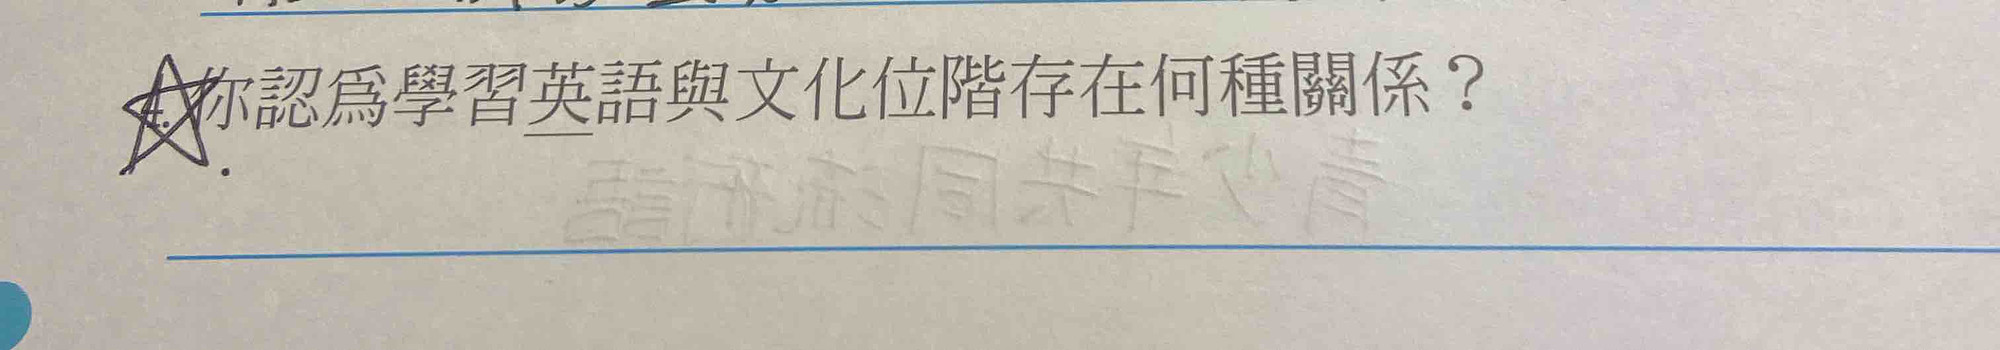 4.你認爲學習英語與文化位階存在何種關係？